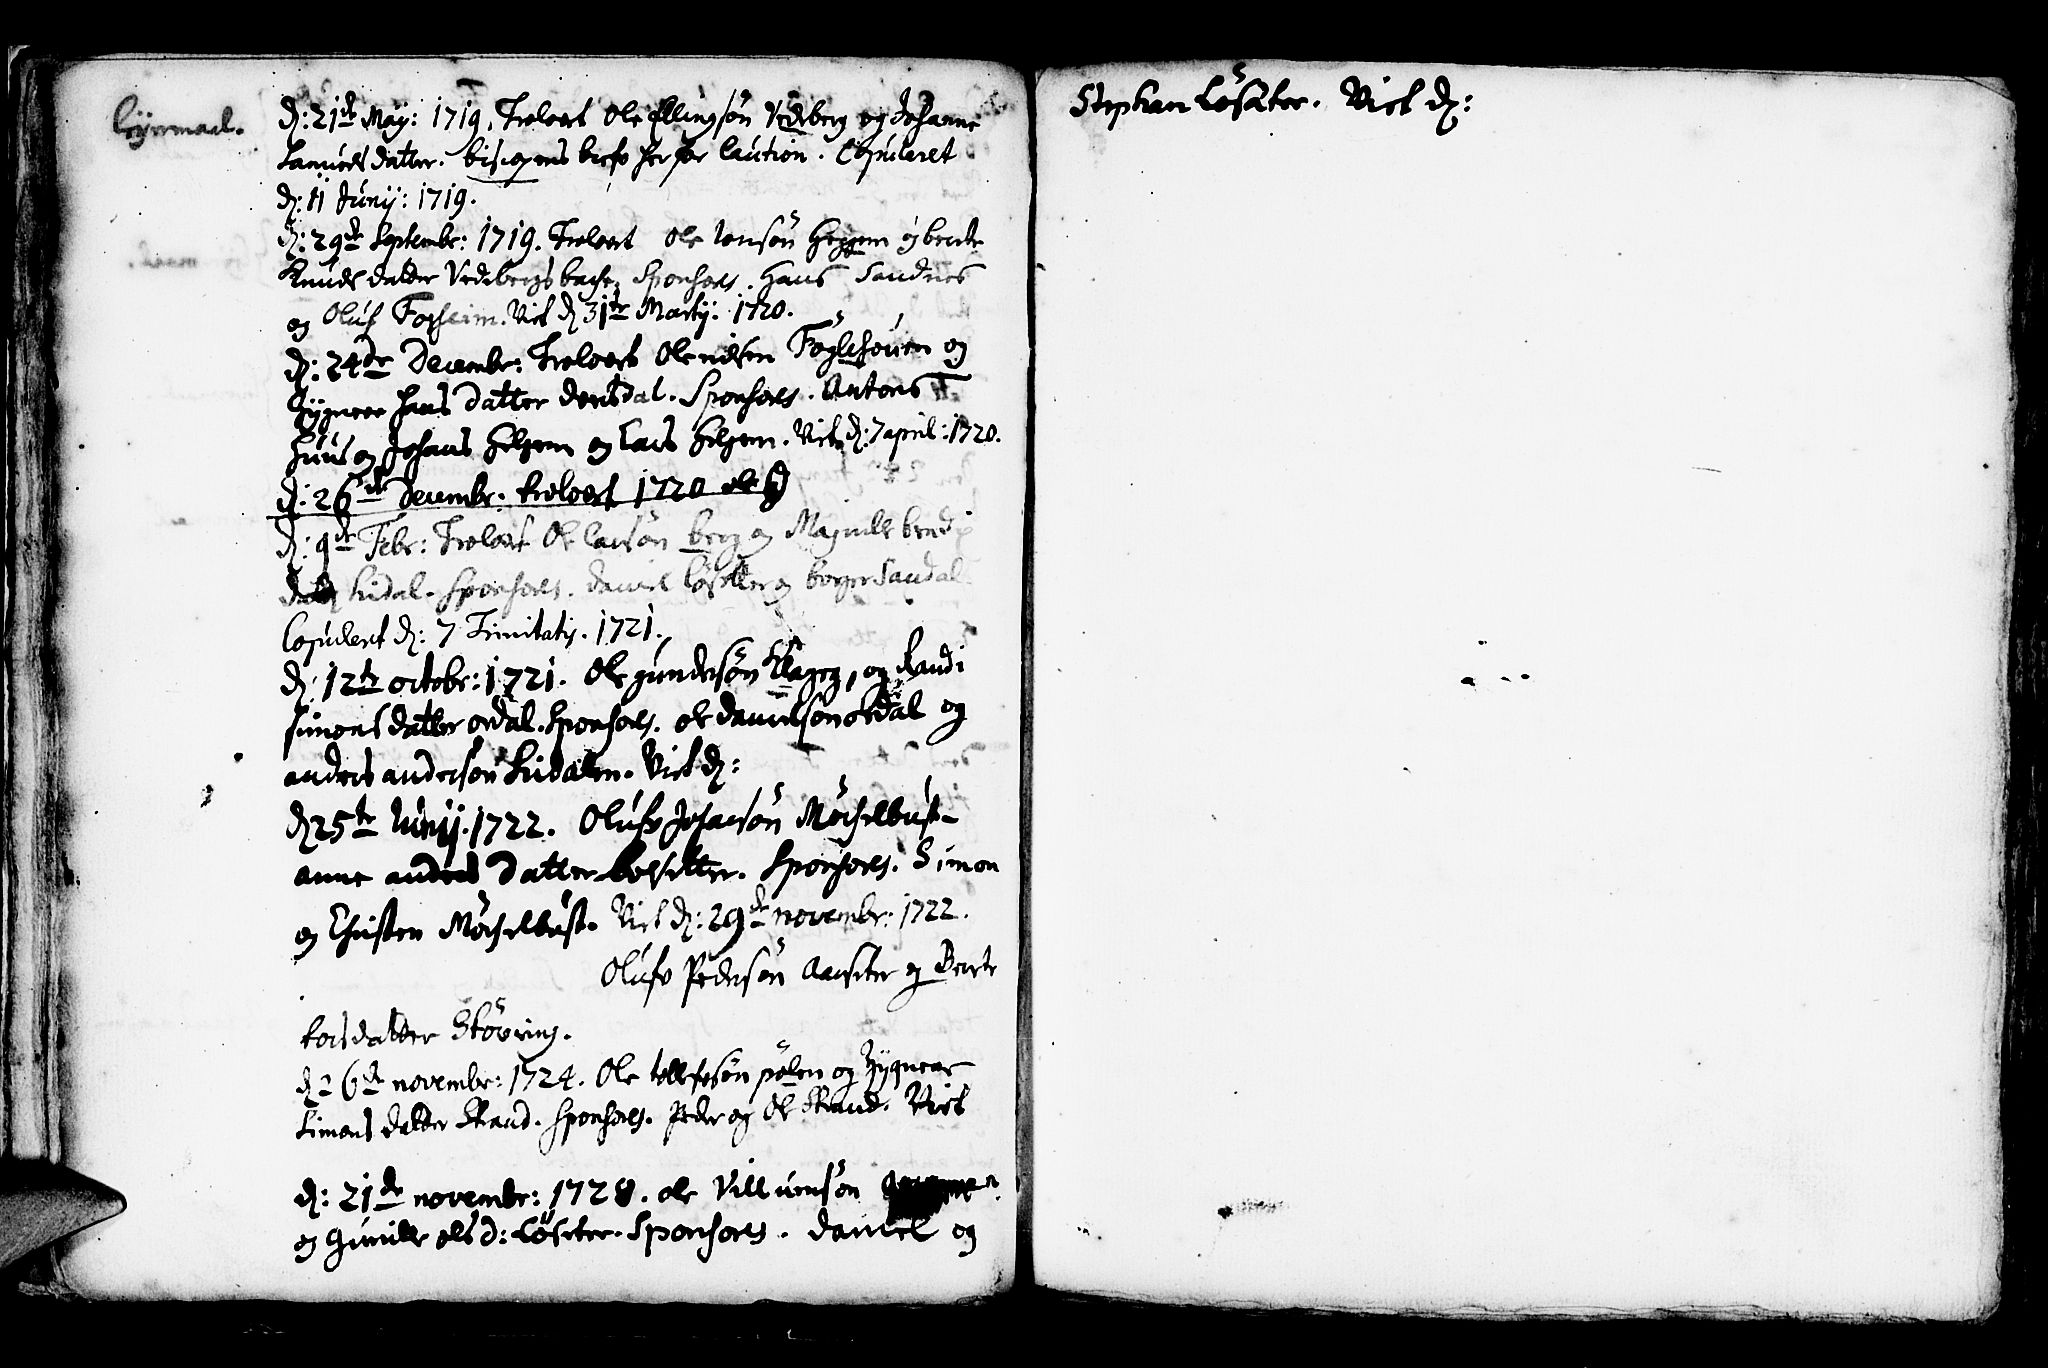 Leyermaal.
d: 21de Maij: 1719. Troloved Ole Ellingsön Vedeberg og Johanne
Samuels datter. bispens bref her for Caution. Copuleret
d: 11 Junij: 1719.
d: 29de Septembr: 1719. Troloved Ole Jonsön Heggem og berite
Knuds datter Vedebergs bache. Sponsores. Hans Sandnes
og Oluf Forseim. Viet d 31te Martij: 1720.
d: 24de Decembr: Troloved Ole nilsen Föglehouen og
Zygneer hans datter
Huus og Johans Helgem og Lars Helgem. Viet d: 7 april: 1720.
d: 26de Decembr: troloved 1720 ole
d: 9de Febr: Troloved Ole Larsön berg og Magnille bendix
Lidal. Sponsores. daniel Lösetter og berger Sandal
Copulert d: 7 Trinitatis. 1721.
d: 12te octobr: 1721. Ole gundersön og Randi
simons datter ordal. Sponsores. ole danielsön ordal og
anders andersön Lidalen. Viet d:
d 25te Junij. 1722. Olufv Johansön Möchelbust
anne anders datter Sponsores. Simon
og Christen Möchelbust. Viet d: 29de novembr: 1722.
Olufv Pedersön Aarseter og Berte
torsdatter Stövring.
d 26de novembr: 1724. Ole tollefsön pölen og Zygneer
Simons datter Strand. Sponsores. Peder og Ole Strand. Viet
d: 21de novembr: 1728. ole Villumsön
og Gunille ols d: Löseter. Sponsores. daniel og
Stephan Lösäter. Viet d: